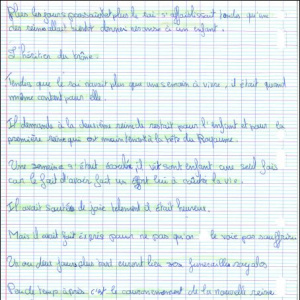 Plus les jours passaient plus le roi s'affaiblissait tandis qu'une
des reines allait bientôt donner naissance à un enfant.
L'héritier du trône.
Tandis que le roi n'avait plus que une semaine à vivre, il était quand
même content pour elle.
Il demanda à la deuxième reine de pour l'enfant et pour la
première reine qui est maintenant à la tête du Royaume.
Une semaine s'était écoulée, il vit son enfant une seul fois
car le fait d'après fut un lui à la vie.
Il avait de joie telement il était heureux.
Mais il avait fait exprès pour ne pas qu'on le voie pas souffrir.
Un ou deux jours plus tard eurent lieu ses funérailles royales
Peu de temps après c'est le couronnement de la nouvelle reine